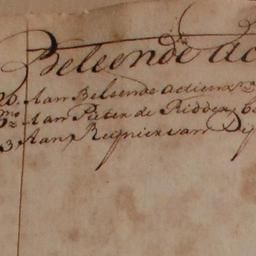 Beleende Ac
20. Aan Beleende actien
Aan Pieter de Ridder
3 Aan Regnier van